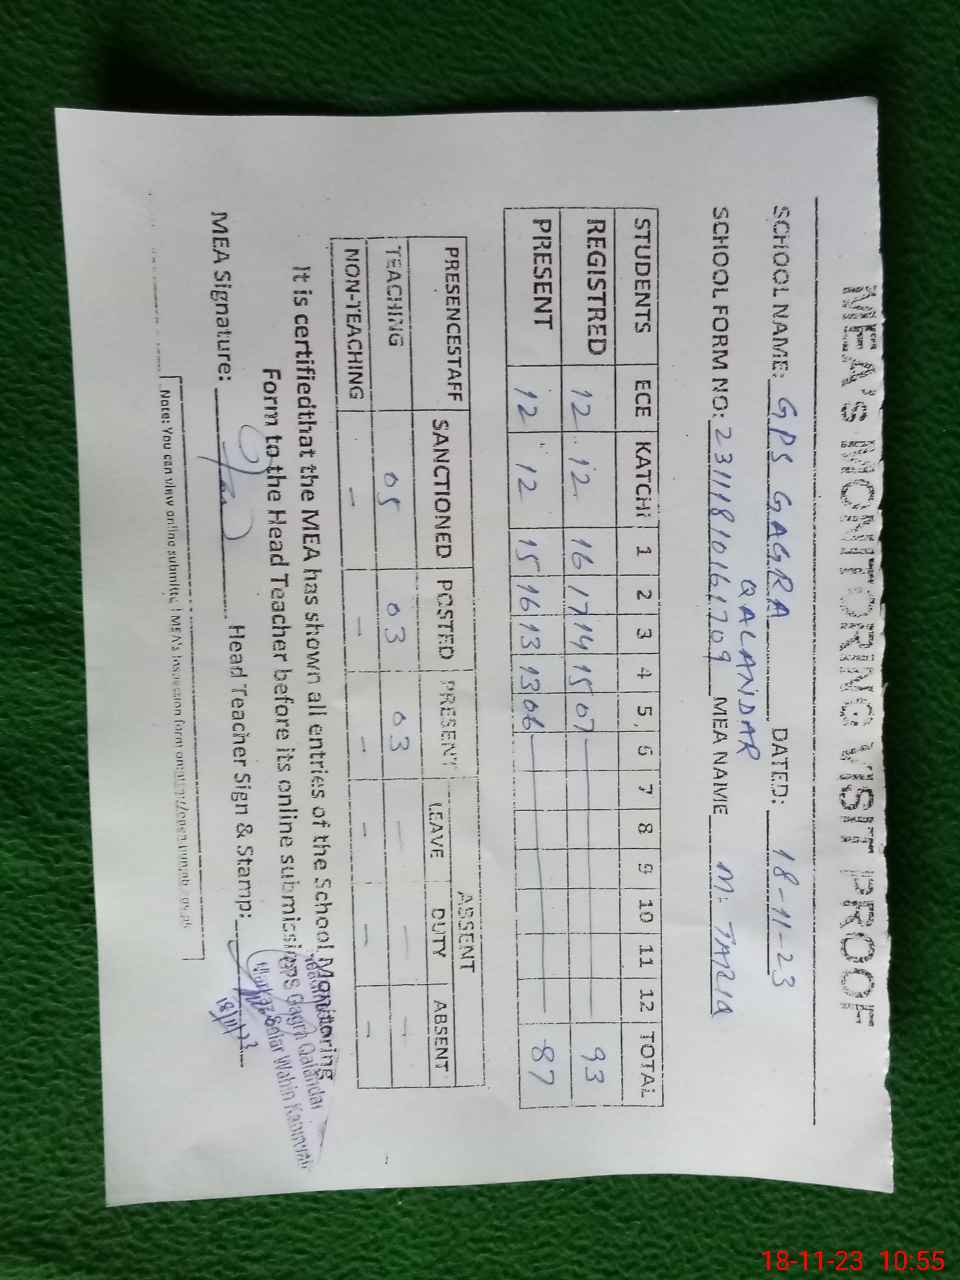 MEA'S MONITORING VISIT PROOF
SCHOOL NAME: GPS GAGRA QALANDAR DATED: 18-11-23
SCHOOL FORM NO: MEA NAME M. TARIQ
STUDENTS ECE KATCHI 1 2 3 4 5 6 7 8 9 10 11 12 TOTAL
REGISTRED 12 12 16 17 14 15 07 93
PRESENT 12 12 15 16 13 13 06 87
PRESENCESTAFF SANCTIONED POSTED PRESENT ABSENT
LEAVE DUTY ABSENT
TEACHING 05 03 03 - - -
NON-TEACHING - - - - - -
It is certifiedthat the MEA has shown all entries of the School Monitoring
Form to the Head Teacher before its online submission
GPS Gagra Qalandar
MEA Signature: Head Teacher Sign & Stamp:
18/11/23
Note: You can view online submitted MEA's Inspection form
18-11-23 10:55